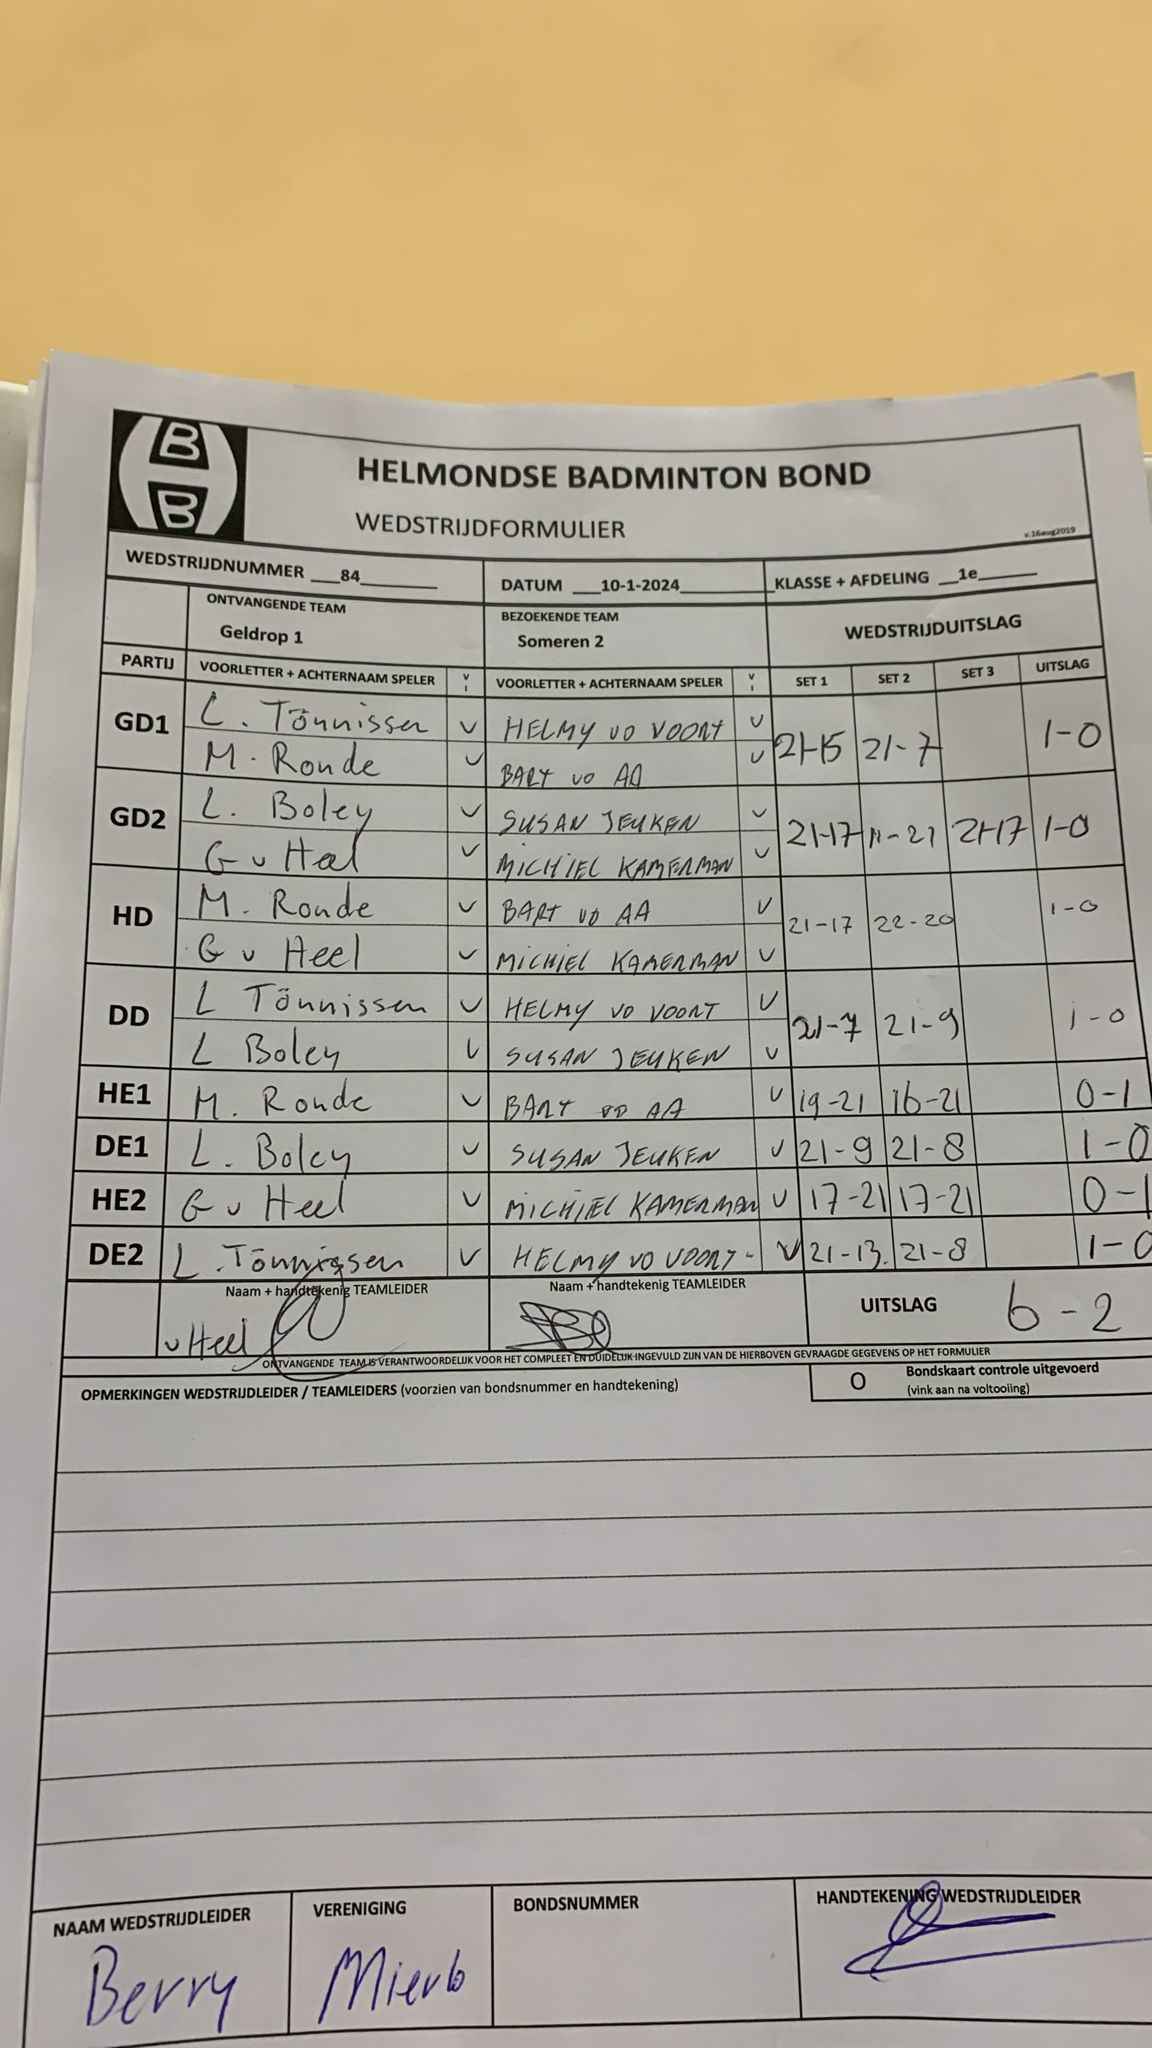 B
B
HELMONDSE BADMINTON BOND
WEDSTRIJDFORMULIER
v.16aug2019
WEDSTRIJDNUMMER ___84________ DATUM ___10-1-2024__________ KLASSE + AFDELING __1e______
ONTVANGENDE TEAM BEZOEKENDE TEAM WEDSTRIJDUITSLAG
Geldrop 1 Someren 2
PARTIJ VOORLETTER + ACHTERNAAM SPELER V - VOORLETTER + ACHTERNAAM SPELER V - SET 1 SET 2 SET 3 UITSLAG
GD1 L. Tönnissen V HELMY VD VOORT V 21-15 21-7 1-0
M. Ronde V BART VD AA V
GD2 L. Boley V SUSAN JEUKEN V 21-17 11-21 21-17 1-0
G v Heel V MICHIEL KAMERMAN V
HD M. Ronde V BART VD AA V 21-17 22-20 1-0
G v Heel V MICHIEL KAMERMAN V
DD L Tönnissen V HELMY VD VOORT V 21-7 21-9 1-0
L Boley V SUSAN JEUKEN V
HE1 M. Ronde V BART VD AA V 19-21 16-21 0-1
DE1 L. Boley V SUSAN JEUKEN V 21-9 21-8 1-0
HE2 G v Heel V MICHIEL KAMERMAN V 17-21 17-21 0-1
DE2 L. Tönnissen V HELMY VD VOORT - V 21-13. 21-8 1-0
Naam + handtekenig TEAMLEIDER Naam + handtekenig TEAMLEIDER UITSLAG 6-2
v Heel
ONTVANGENDE TEAM IS VERANTWOORDELIJK VOOR HET COMPLEET EN DUIDELIJK INGEVULD ZIJN VAN DE HIERBOVEN GEVRAAGDE GEGEVENS OP HET FORMULIER
OPMERKINGEN WEDSTRIJDLEIDER / TEAMLEIDERS (voorzien van bondsnummer en handtekening) O Bondskaart controle uitgevoerd
(vink aan na voltooiing)
NAAM WEDSTRIJDLEIDER VERENIGING BONDSNUMMER HANDTEKENING WEDSTRIJDLEIDER
Berry Mierlo